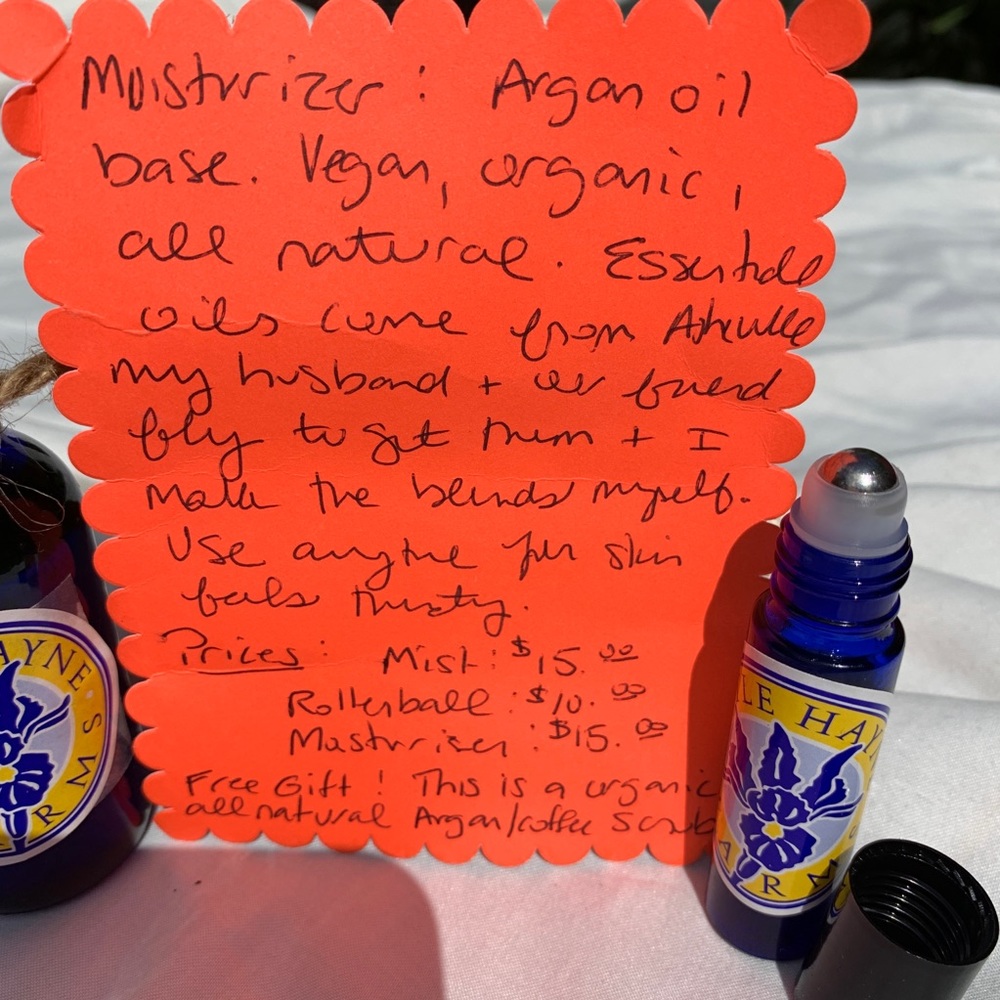 Moisturizer: Argan oil
base. Vegan, organic,
all natural. Essential
oils come from Asheville
my husband + our friend
fly to get them + I
make the blends myself.
Use anytime your skin
feels thirsty.
Prices: Mist: $15.00
Rollerball: $10.00
Moisturizer: $15.00
Free Gift! This is a organic
all natural Argan/coffee Scrub
AYNE
RMS
LE HAY
ARM